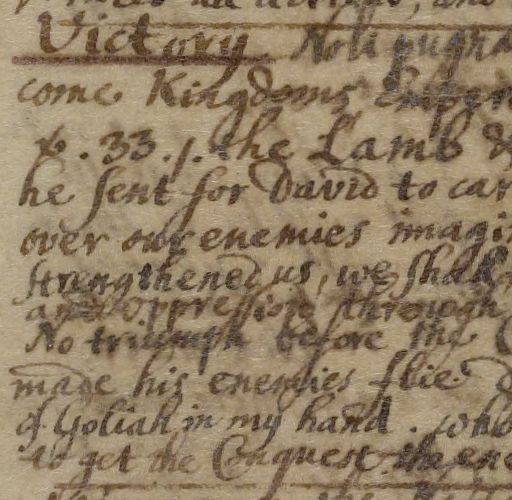 Victory. Noli pugna
come Kingdoms Emper
33. the Lamb
he sent for David to car
over our enemies imagi
strengthened us, we shall
and oppression through
No triumph before the
made his enemies flie
of Goliah in my hand. who
to get the Conquest the ene